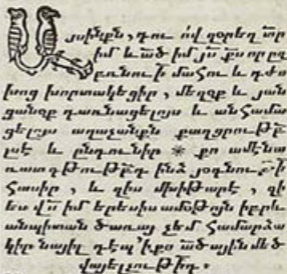 Այսինքն, դու ով զօրեղ տր
իմ և ած իմ յս քս որ ըզ
բռնու ի մահու և դժո
խոց խորտակեցիր, մեղօք և յան
ցանօք դառնացելոյս և անհամա
ցելոյս աղաչանքն քաղցրութբ
լսէ և ընդունիր ※ քո ամենա
գթութբդ ինձ յօգնու
հասիր, և զիս մխիթարէ, զի
ես վս իմ երեսիս ամօթոյն իբրև
անպիտան ծառայ չեմ համարձա
կիր նայիլ դէպ իքո ածային մեծ
վայելչութիդ.